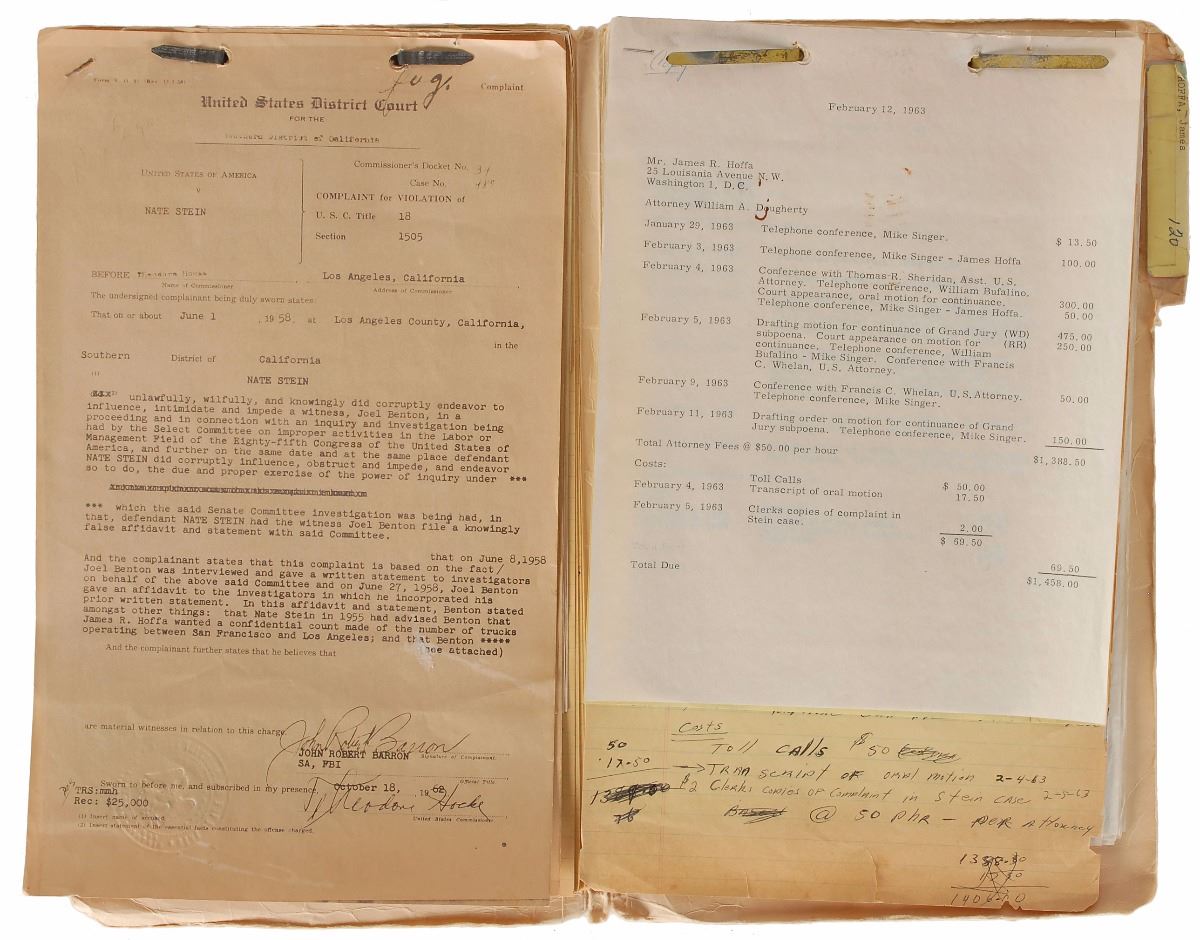 fug.
Complaint
United States District Court
FOR THE
Southern District of California
UNITED STATES OF AMERICA
v
NATE STEIN
Commissioner's Docket No. 34
Case No. 489
COMPLAINT for VIOLATION of
U. S. C. Title 18
Section 1505
BEFORE Theodore Hocke
Name of Commissioner
Los Angeles, California
Address of Commissioner
The undersigned complainant being duly sworn states:
That on or about June 1 , 19 58, at Los Angeles County, California,
in the
Southern District of California
(1)
NATE STEIN
unlawfully, wilfully, and knowingly did corruptly endeavor to
influence, intimidate and impede a witness, Joel Benton, in a
proceeding and in connection with an inquiry and investigation being
had by the Select Committee on improper activities in the Labor or
Management Field of the Eighty-fifth Congress of the United States of
America, and further on the same date and at the same place defendant
NATE STEIN did corruptly influence, obstruct and impede, and endeavor
so to do, the due and proper exercise of the power of inquiry under ***
*** which the said Senate Committee investigation was being had, in
that, defendant NATE STEIN had the witness Joel Benton file a knowingly
false affidavit and statement with said Committee.
And the complainant states that this complaint is based on the fact/ that on June 8,1958
Joel Benton was interviewed and gave a written statement to investigators
on behalf of the above said Committee and on June 27, 1958, Joel Benton
gave an affidavit to the investigators in which he incorporated his
prior written statement. In this affidavit and statement, Benton stated
amongst other things: that Nate Stein in 1955 had advised Benton that
James R. Hoffa wanted a confidential count made of the number of trucks
operating between San Francisco and Los Angeles; and that Benton *****
And the complainant further states that he believes that (see attached)
are material witnesses in relation to this charge.
John Robert Barron
JOHN ROBERT BARRON
Signature of Complainant
SA, FBI
Official Title
Sworn to before me, and subscribed in my presence, October 18, , 19 62
Theodore Hocke
United States Commissioner
TRS:mmh
Rec: $25,000
(1) Insert name of accused
(2) Insert statement of the essential facts constituting the offense charged.
February 12, 1963
Mr. James R. Hoffa
25 Louisiania Avenue N.W.
Washington 1, D.C.
Attorney William A. Dougherty
January 29, 1963 Telephone conference, Mike Singer. $ 13.50
February 3, 1963 Telephone conference, Mike Singer - James Hoffa 100.00
February 4, 1963 Conference with Thomas R. Sheridan, Asst. U.S.
Attorney. Telephone conference, William Bufalino.
Court appearance, oral motion for continuance. 300.00
Telephone conference, Mike Singer - James Hoffa. 50.00
February 5, 1963 Drafting motion for continuance of Grand Jury (WD) 475.00
subpoena. Court appearance on motion for (RR) 250.00
continuance. Telephone conference, William
Bufalino - Mike Singer. Conference with Francis
C. Whelan, U.S. Attorney.
February 9, 1963 Conference with Francis C. Whelan, U.S. Attorney.
Telephone conference, Mike Singer. 50.00
February 11, 1963 Drafting order on motion for continuance of Grand
Jury subpoena. Telephone conference, Mike Singer. 150.00
Total Attorney Fees @ $50.00 per hour $1,388.50
Costs:
Toll Calls $ 50.00
February 4, 1963 Transcript of oral motion 17.50
February 5, 1963 Clerks copies of complaint in
Stein case. 2.00
$ 69.50
Total Due 69.50
$1,458.00
Costs
50 Toll CALLS $50
17.50 → TRANSCRIPT OF ORAL Motion 2-4-63
$2 Clerks Copies OF Complaint in Stein case 2-5-63
@ 50 phr - per Attorney
HOFFA, James
120